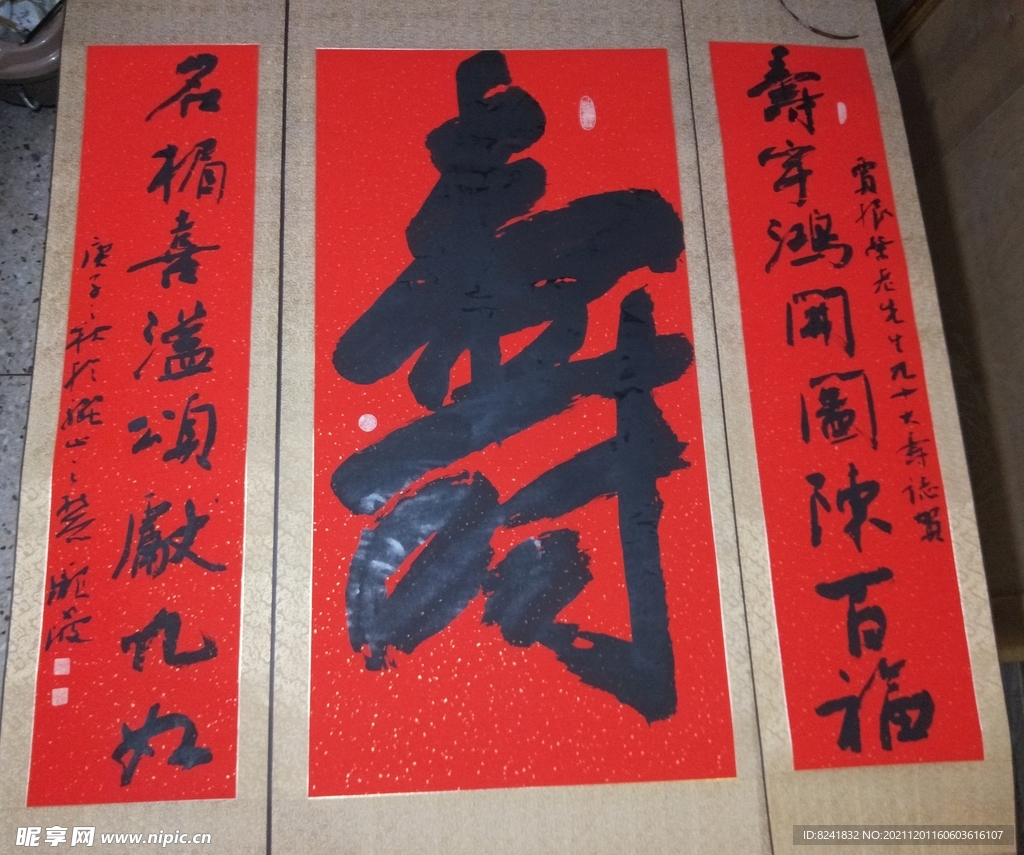 壽宇鴻開圖陳百福
振榮老先生九十大壽誌賀
壽
名楣喜溢頌獻九如
庚子之秋於山之麓
昵享网 www.nipic.cn
ID:8241832 NO:20211201160603616107